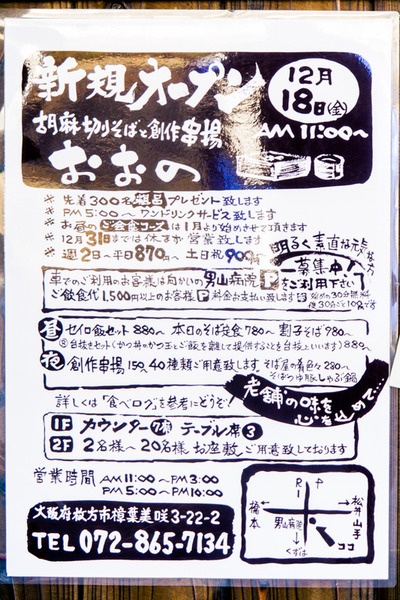 新規オープン
12月
18日(金)
AM 11:00〜
胡麻切りそばと創作串揚
おおの
* 先着300名 プレゼント致します
* PM 5:00〜 ワンドリンクサービス致します
* お昼のご会食コースは1月より始めさせて頂きます
* 12月31日までは休まず営業致します
* 週2日〜 平日870円 土日祝900円
明るく素直な元気な方
募集中
車でのご利用のお客様は向かいの男山病院Pをご利用下さい
ご飲食代1,500円以上のお客様P料金お支払い致します
始めの30分無料
後30分ごと108円です
昼 セイロ飯セット880〜 本日のそば定食780〜 割子そば980〜
夜 創作串揚150、40種類ご用意致します。そば屋の肴色々280〜
そばつゆ豚しゃぶ鍋
老舗の味を
心を込めて…
詳しくは「食べログ」を参考にどうぞ!
1F カウンター7席 テーブル席3
2F 2名様〜20名様 お座敷 ご用意致しております
営業時間 AM 11:00〜PM 3:00
PM 5:00〜PM 10:00
大阪府枚方市樟葉美咲3-22-2
TEL 072-865-7134
R1
P
橋本
松井山手
男山病院
くずは
ココ